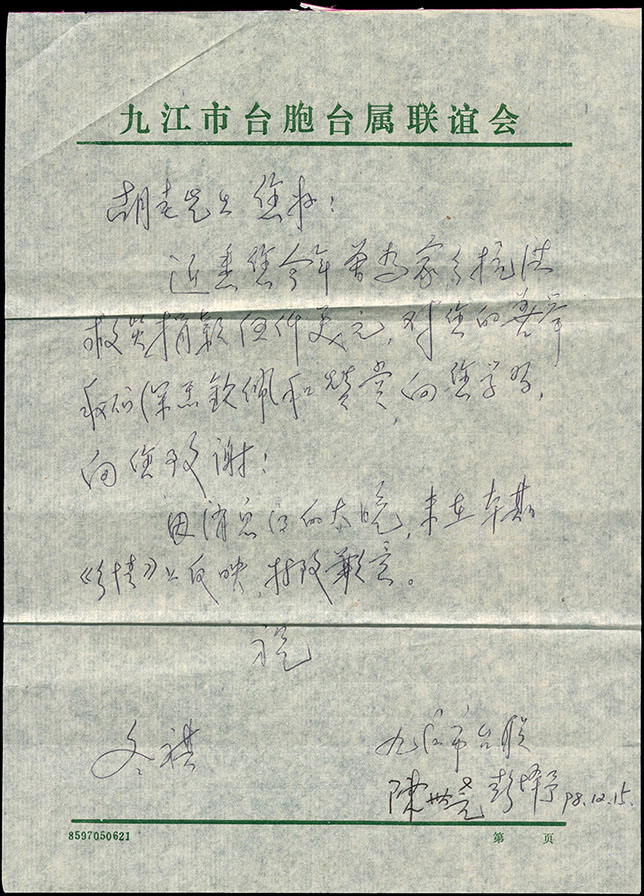 九江市台胞台属联谊会
胡老先生您好：
近悉您今年曾为家乡抗洪
救灾捐款伍仟美元，对您的善举
我们深表钦佩和赞赏，向您学习，
向您致谢！
因消息得的太晚，未在本期
《乡情》上反映，特致歉意。
祝
冬祺
九江市台联
陳世亮 彭 98.12.15.
8597050621
第 页